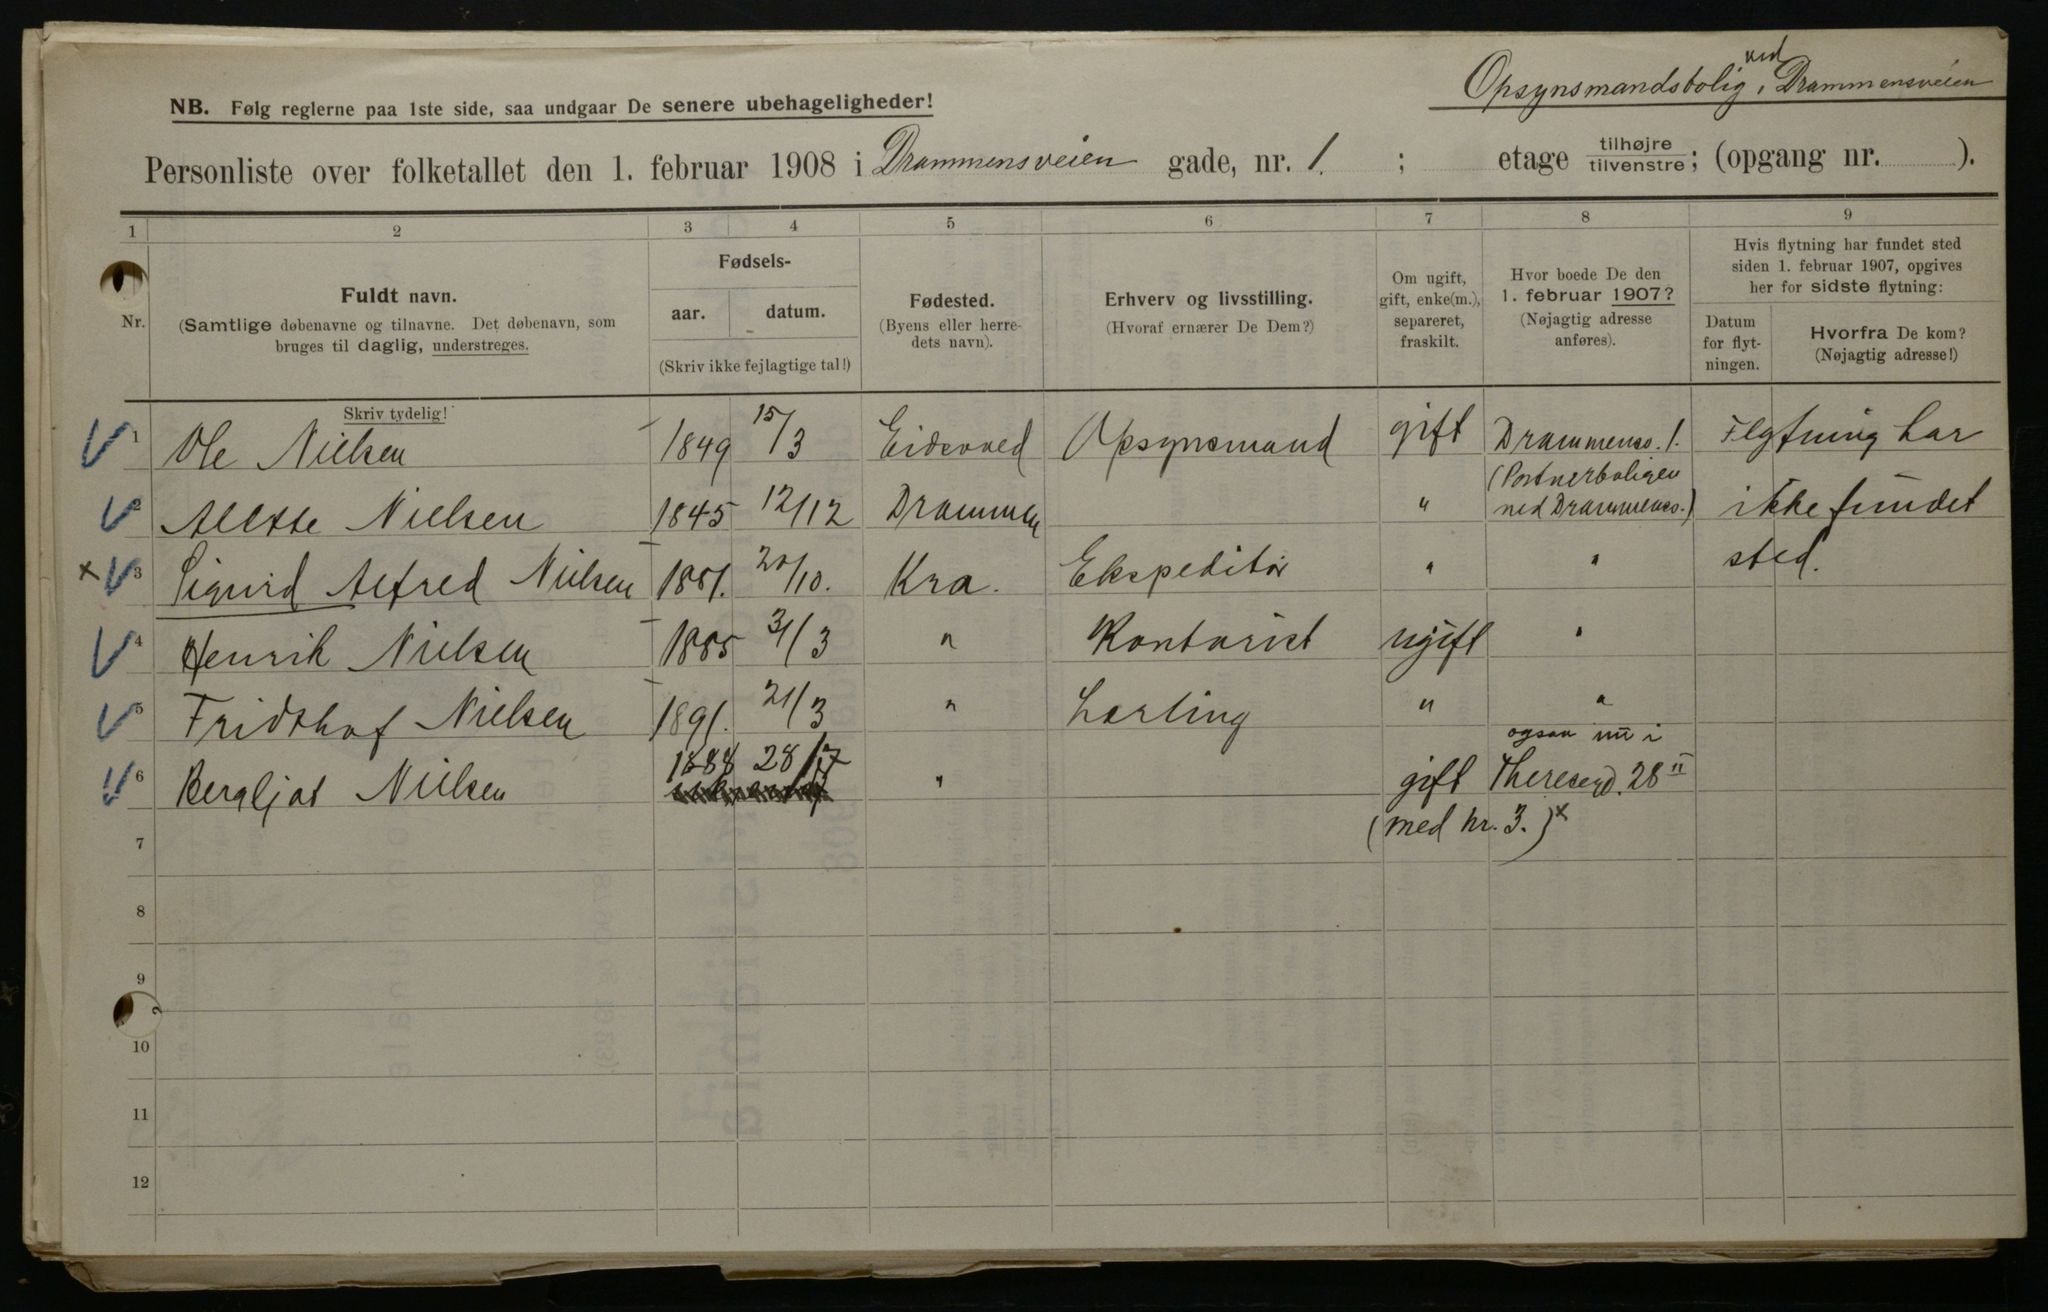 Opsynsmandsbolig ved Drammensveien
NB. Følg reglerne paa 1ste side, saa undgaar De senere ubehageligheder!
Personliste over folketallet den 1. februar 1908 i Drammensveien gade, nr. 1. ; etage tilhøjre tilvenstre; (opgang nr. ).
1 2 3 4 5 6 7 8 9
Nr.
Fuldt navn.
(Samtlige døbenavne og tilnavne. Det døbenavn, som
bruges til daglig, understreges.
Skriv tydelig!
Fødsels-
aar. datum.
(Skriv ikke fejlagtige tal!)
Fødested.
(Byens eller herre-
dets navn).
Erhverv og livsstilling.
(Hvoraf ernærer De Dem?)
Om ugift,
gift, enke(m.),
separeret,
fraskilt.
Hvor boede De den
1. februar 1907?
(Nøjagtig adresse
anføres).
Hvis flytning har fundet sted
siden 1. februar 1907, opgives
her for sidste flytning:
Datum
for flyt-
ningen.
Hvorfra De kom?
(Nøjagtig adresse!)
1 Ole Nielsen 1849 15/3 Eidsvold Opsynsmand gift Drammensv. 1. Flytning har
(Portnerboligen
2 Nielsen 1845 12/12 Drammen " ved Drammensv.) ikke fundet
x 3 Sigurd Alfred Nielsen 1881. 20/10. Kra. Ekspeditør " " sted.
4 Henrik Nielsen 1885 3/3 " Kontorist ugift "
5 Fridthof Nielsen 1891. 21/3 " Lærling " "
ogsaa nu i
6 Bergljot Nielsen 1888 28/7 " gift Theresegd. 28 II
(med nr. 3.) x
7
8
9
10
11
12